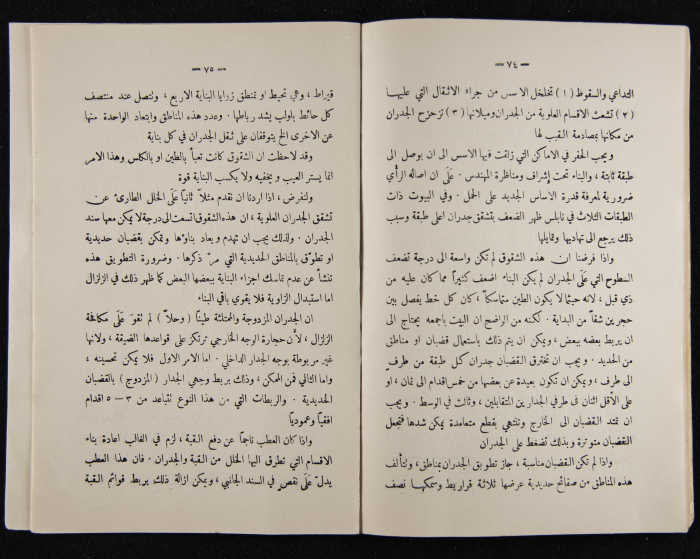 — ٧٤ —
التداعي والسقوط (١) تخلخل الاسس من جراء الاثقال التي عليها
(٢) تشعث الاقسام العلوية من الجدران وميلانها (٣) تزحزح الجدران
من مكانها بمصادمة القبب لها
ويجب الحفر في الاماكن التي زلقت فيها الاسس الى ان يوصل الى
طبقة ثابتة ، والبناء تحت إشراف ومناظرة المهندس . على ان اصالة الرأي
ضرورية لمعرفة قدرة الاساس الجديد على الحمل . وفي البيوت ذات
الطبقات الثلاث في نابلس ظهر الضعف بتشقق جدران اعلى طبقة وسبب
ذلك يرجع الى تهاديها وتمايلها
واذا فرضنا ان هذه الشقوق لم تكن واسعة الى درجة تضعف
السطوح التي على الجدران لم يكن البناء اضعف كثيراً مما كان عليه من
ذي قبل ، لانه حيثما لا يكون الطين متماسكاً ، كان كل خط يفصل بين
حجرين شقاً من البداية . لكنه من الراضح ان البيت باجمعه يحتاج الى
ان يربط بعضه ببعض ، ويمكن ان يتم ذلك باستعمال قضبان او مناطق
من الحديد . ويجب ان تخترق القضبان جدران كل طبقة من طرف
الى طرف ، ويمكن ان تكون بعيدة عن بعضها من خمس اقدام الى ثمان ، او
على الأقل اثنان في طرفي الجدارين المتقابلين ، وثالث في الوسط . ويجب
ان تمتد القضبان الى الخارج وتنتهي بقطع متعامدة يمكن شدها فتجعل
القضبان متوترة وبذلك تضغط على الجدران
واذا لم تكن القضبان مناسبة ، جاز تطويق الجدران بمناطق ، وتتألف
هذه المناطق من صفائح حديدية عرضها ثلاثة قراريط وسمكها نصف
— ٧٥ —
قيراط ، وهي تحيط او تمنطق زوايا البناية الاربع ، وتتصل عند منتصف
كل حائط بلولب يشد رباطها . وعدد هذه المناطق وابتعاد الواحدة منها
عن الاخرى الخ يتوقفان على ثقل الجدران في كل بناية
وقد لاحظت ان الشقوق كانت تعبأ بالطين او بالكلس وهذا الامر
انما يستر العيب ويخفيه ولا يكسب البناية قوة
ولنفرض ، اذا اردنا ان نقدم مثلاً ثانياً على الخلل الطارئ عن
تشقق الجدران العلوية ، ان هذه الشقوق اتسعت الى درجة لا يمكن معها سند
الجدران . ولذلك يجب ان تهدم ويعاد بناؤها وتمكن بقضبان حديدية
او تطوق بالمناطق الحديدية التي مر ذكرها . وضرورة التطويق هذه
تنشأ عن عدم تماسك اجزاء البناية ببعضها البعض كما ظهر ذلك في الزلزال
اما استبدال الزاوية فلا يقوي باقي البناء
ان الجدران المزدوجة والممتلئة طيناً ( وحلاً ) لم تقو على مكافحة
الزلزال ، لأن حجارة الوجه الخارجي ترتكز على قواعدها الضيقة ، ولانها
غير مربوطة بوجه الجدار الداخلي . اما الامر الاول فلا يمكن تحسينه ،
واما الثاني فمن الممكن ، وذلك بربط وجهي الجدار ( المزدوج ) بالقضبان
الحديدية . والربطات التي من هذا النوع تتباعد من ٣ — ٥ اقدام
افقياً وعمودياً
واذا كان العطب ناجماً عن دفع القبة ، لزم في الغالب اعادة بناء
الاقسام التي تطرق اليها الخلل من القبة والجدران . فان هذا العطب
يدل على نقص في السند الجانبي ، ويمكن ازالة ذلك بربط قوائم القبة